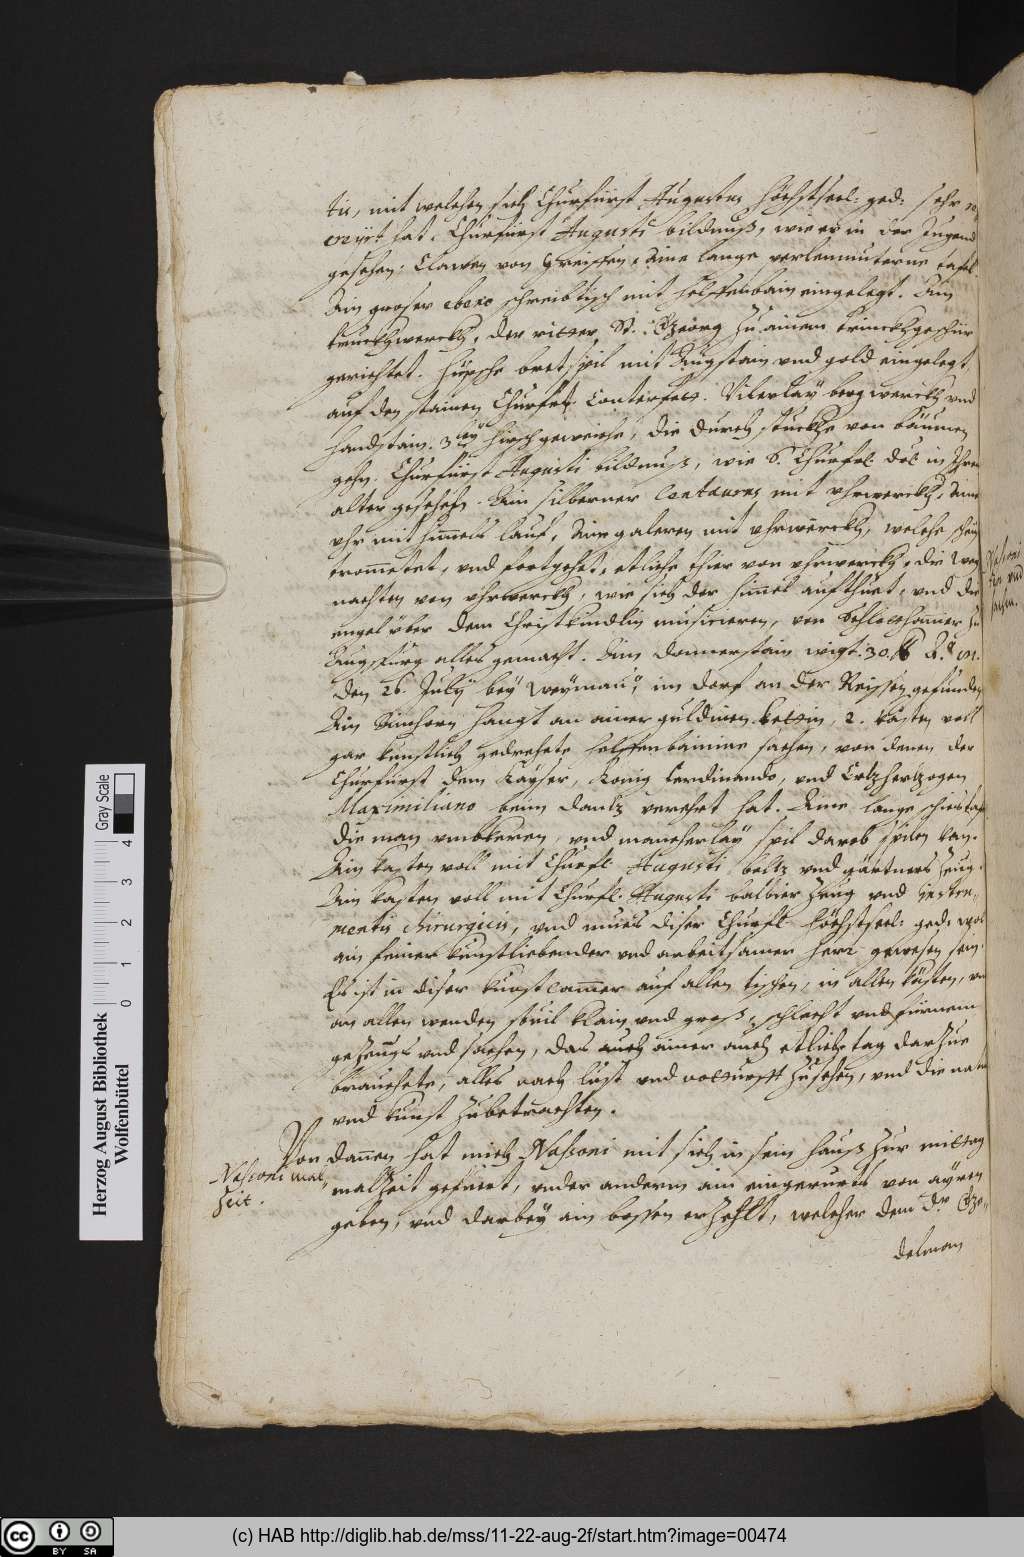 tis, mit welchen sich Churfürst Augustus höchstseel: ged: sehr re-
creiirt hat. Churfürst Augusti bildnuß, wie er in der Jugend
gesehen. Clawen von Greiffen. Aine lange perlenmuterne tafel
Ain groser ebene schreibtisch mit helffenbain eingelegt. Ain
truckhwerckh, der ritter St. Georg zu ainem trinckhgeschür
gerichtet. Hüpsche bretspil mit Augstain vnd gold eingelegt,
auf den stainen Churfrl. Conterfett. Vilerlay bergwerckh vnd
handstain. 3 hirschgeweiche, die durch stuckhe von bäumen
gehn. Churfürst Augusti bildnuß, wie S. Churfrl. in Ihrem
alter gesehen. Ain silberner Centaurus mit vhrwerckh, Aine
vhr mit himmels lauf, Aine galeren mit vhrwerckh, welche scheüst
trommetet, vnd fortgehet, etliche thier von vhrwerckh, die Wey-
nachten von vhrwerckh, wie sich der himmel aufthuet, vnd die
engel yber dem Christkindlin musicieren, von Schlotthamer zu
Augspurg alles gemacht. Ain donnerstain wigt. 30. lb
den 26. July bey Weymaü, im dorf an der Reissen gefunden
Ain Ainhorn hangt an ainer guldinen kettin, 2. kästen voll
gar kunstlich gedrehete helffenbainine sachen, von denen der
Churfürst dem Kayser, König Ferdinando, vnd Ertzhertzogen
Maximiliano beim dantz verehrt hat. Aine lange schiestafel
die man vmbkeren, vnd mancherlay spil darob spilen kan.
Ain kasten voll mit Churfl. Augusti beltz vnd gärtners zeug.
Ain kasten voll mit Churfl. Augusti balbier zeug vnd instru-
mentis chirurgicis, vnd mues diser Churfl. höchstseel: ged: wol
ain feiner kunstliebender vnd arbeitsamer herr gewesen sein.
Es ist in diser kunst cammer auf allen tischen, in allen kästen, vnd
an allen wenden souil klain vnd groß, schlecht vnd fürnem
gezeugs vnd sachen, das auch ainer auch etliche tag darzue
brauchete, alles nach lust vnd notturfft zusehen, vnd die natur
vnd kunst zubetrachten.
Von dannen hat mich Nosseni mit sich in sein hauß zur mittag
malzeit gefüert, vnder anderm ain eingerürts von ayren
geben, vnd darbey ain bossen erzehlt, welcher dem Dr. Gö-
delman
Nosseni mal-
zeit.
Nosseni
vnd
sachen.
Herzog August Bibliothek
Wolfenbüttel
0 1 2 3 4
Gray Scale
CC BY SA
(c) HAB http://diglib.hab.de/mss/11-22-aug-2f/start.htm?image=00474